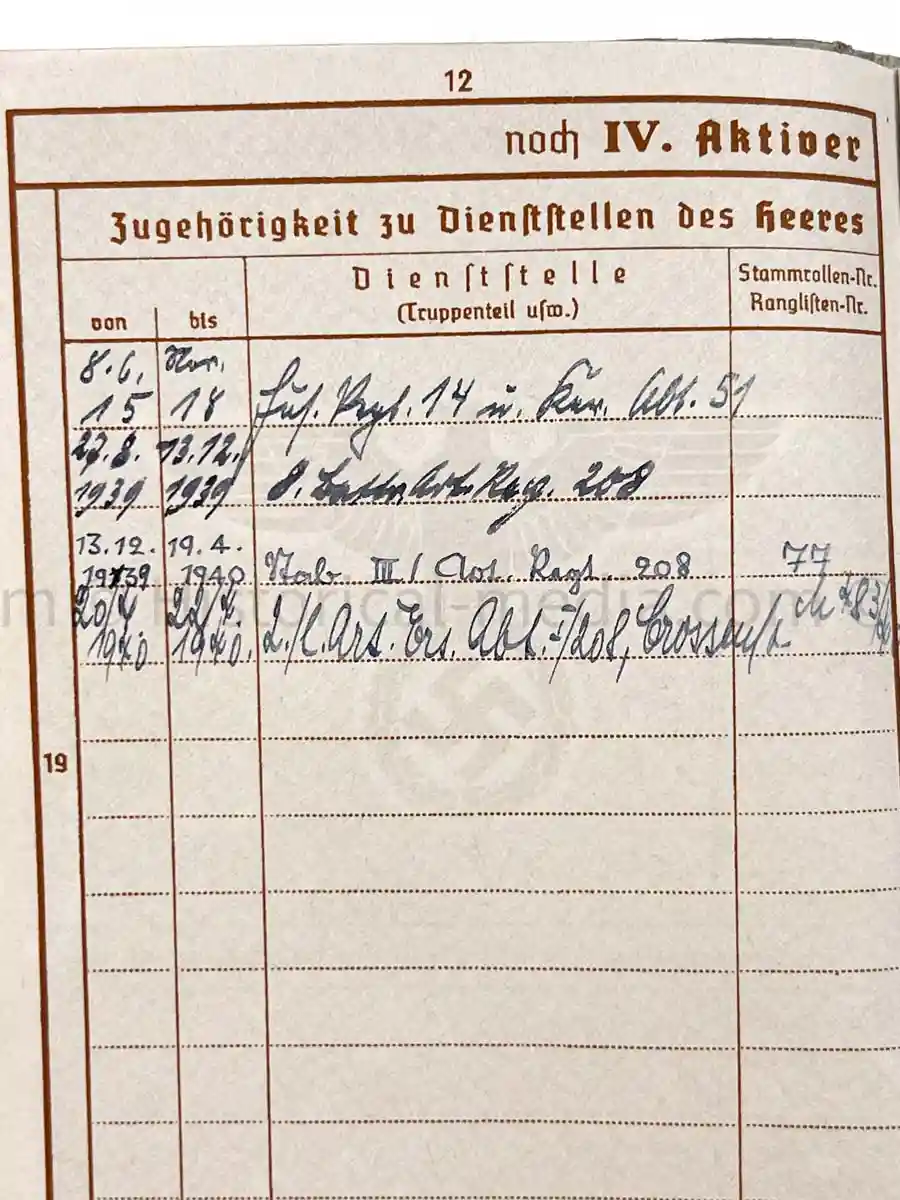 12
noch IV. Aktiver
Zugehörigkeit zu Dienststellen des Heeres
von bis
Dienststelle
(Truppenteil usw.)
Stammrollen-Nr.
Ranglisten-Nr.
8.6. Nov.
15 18 Hus. Regt. 14 u. Kav. Abt. 51
27.8. 13.12.
1939 1939 8. Battr. Art. Reg. 208
13.12. 19.4.
1939 1940 Stab III/ Art. Regt. 208 77
20/4. 22/4.
1940 1940. 2./l. Art. Ers. Abt. I/208, Crossen/
19
historical-media.com